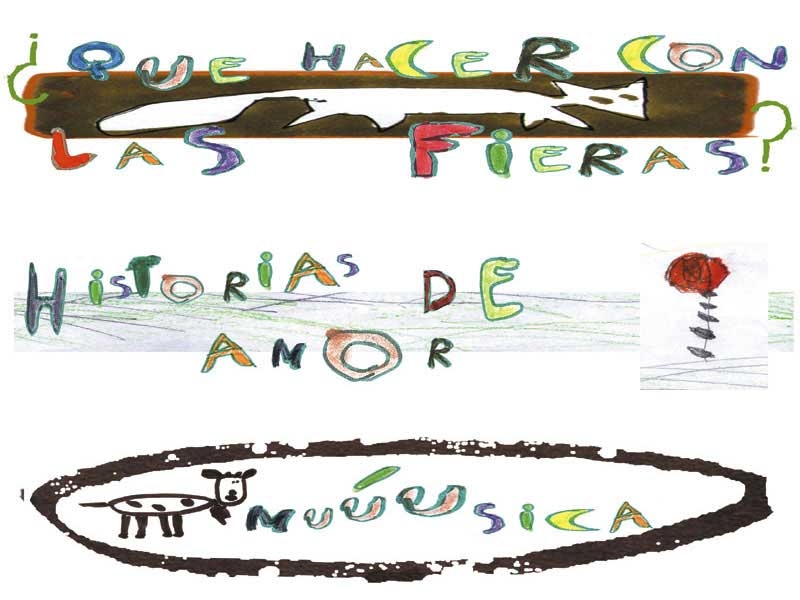 ¿QUE HACER CON
LAS FIERAS?
HiSTORiAS DE
AMOR
MuúuSiCA